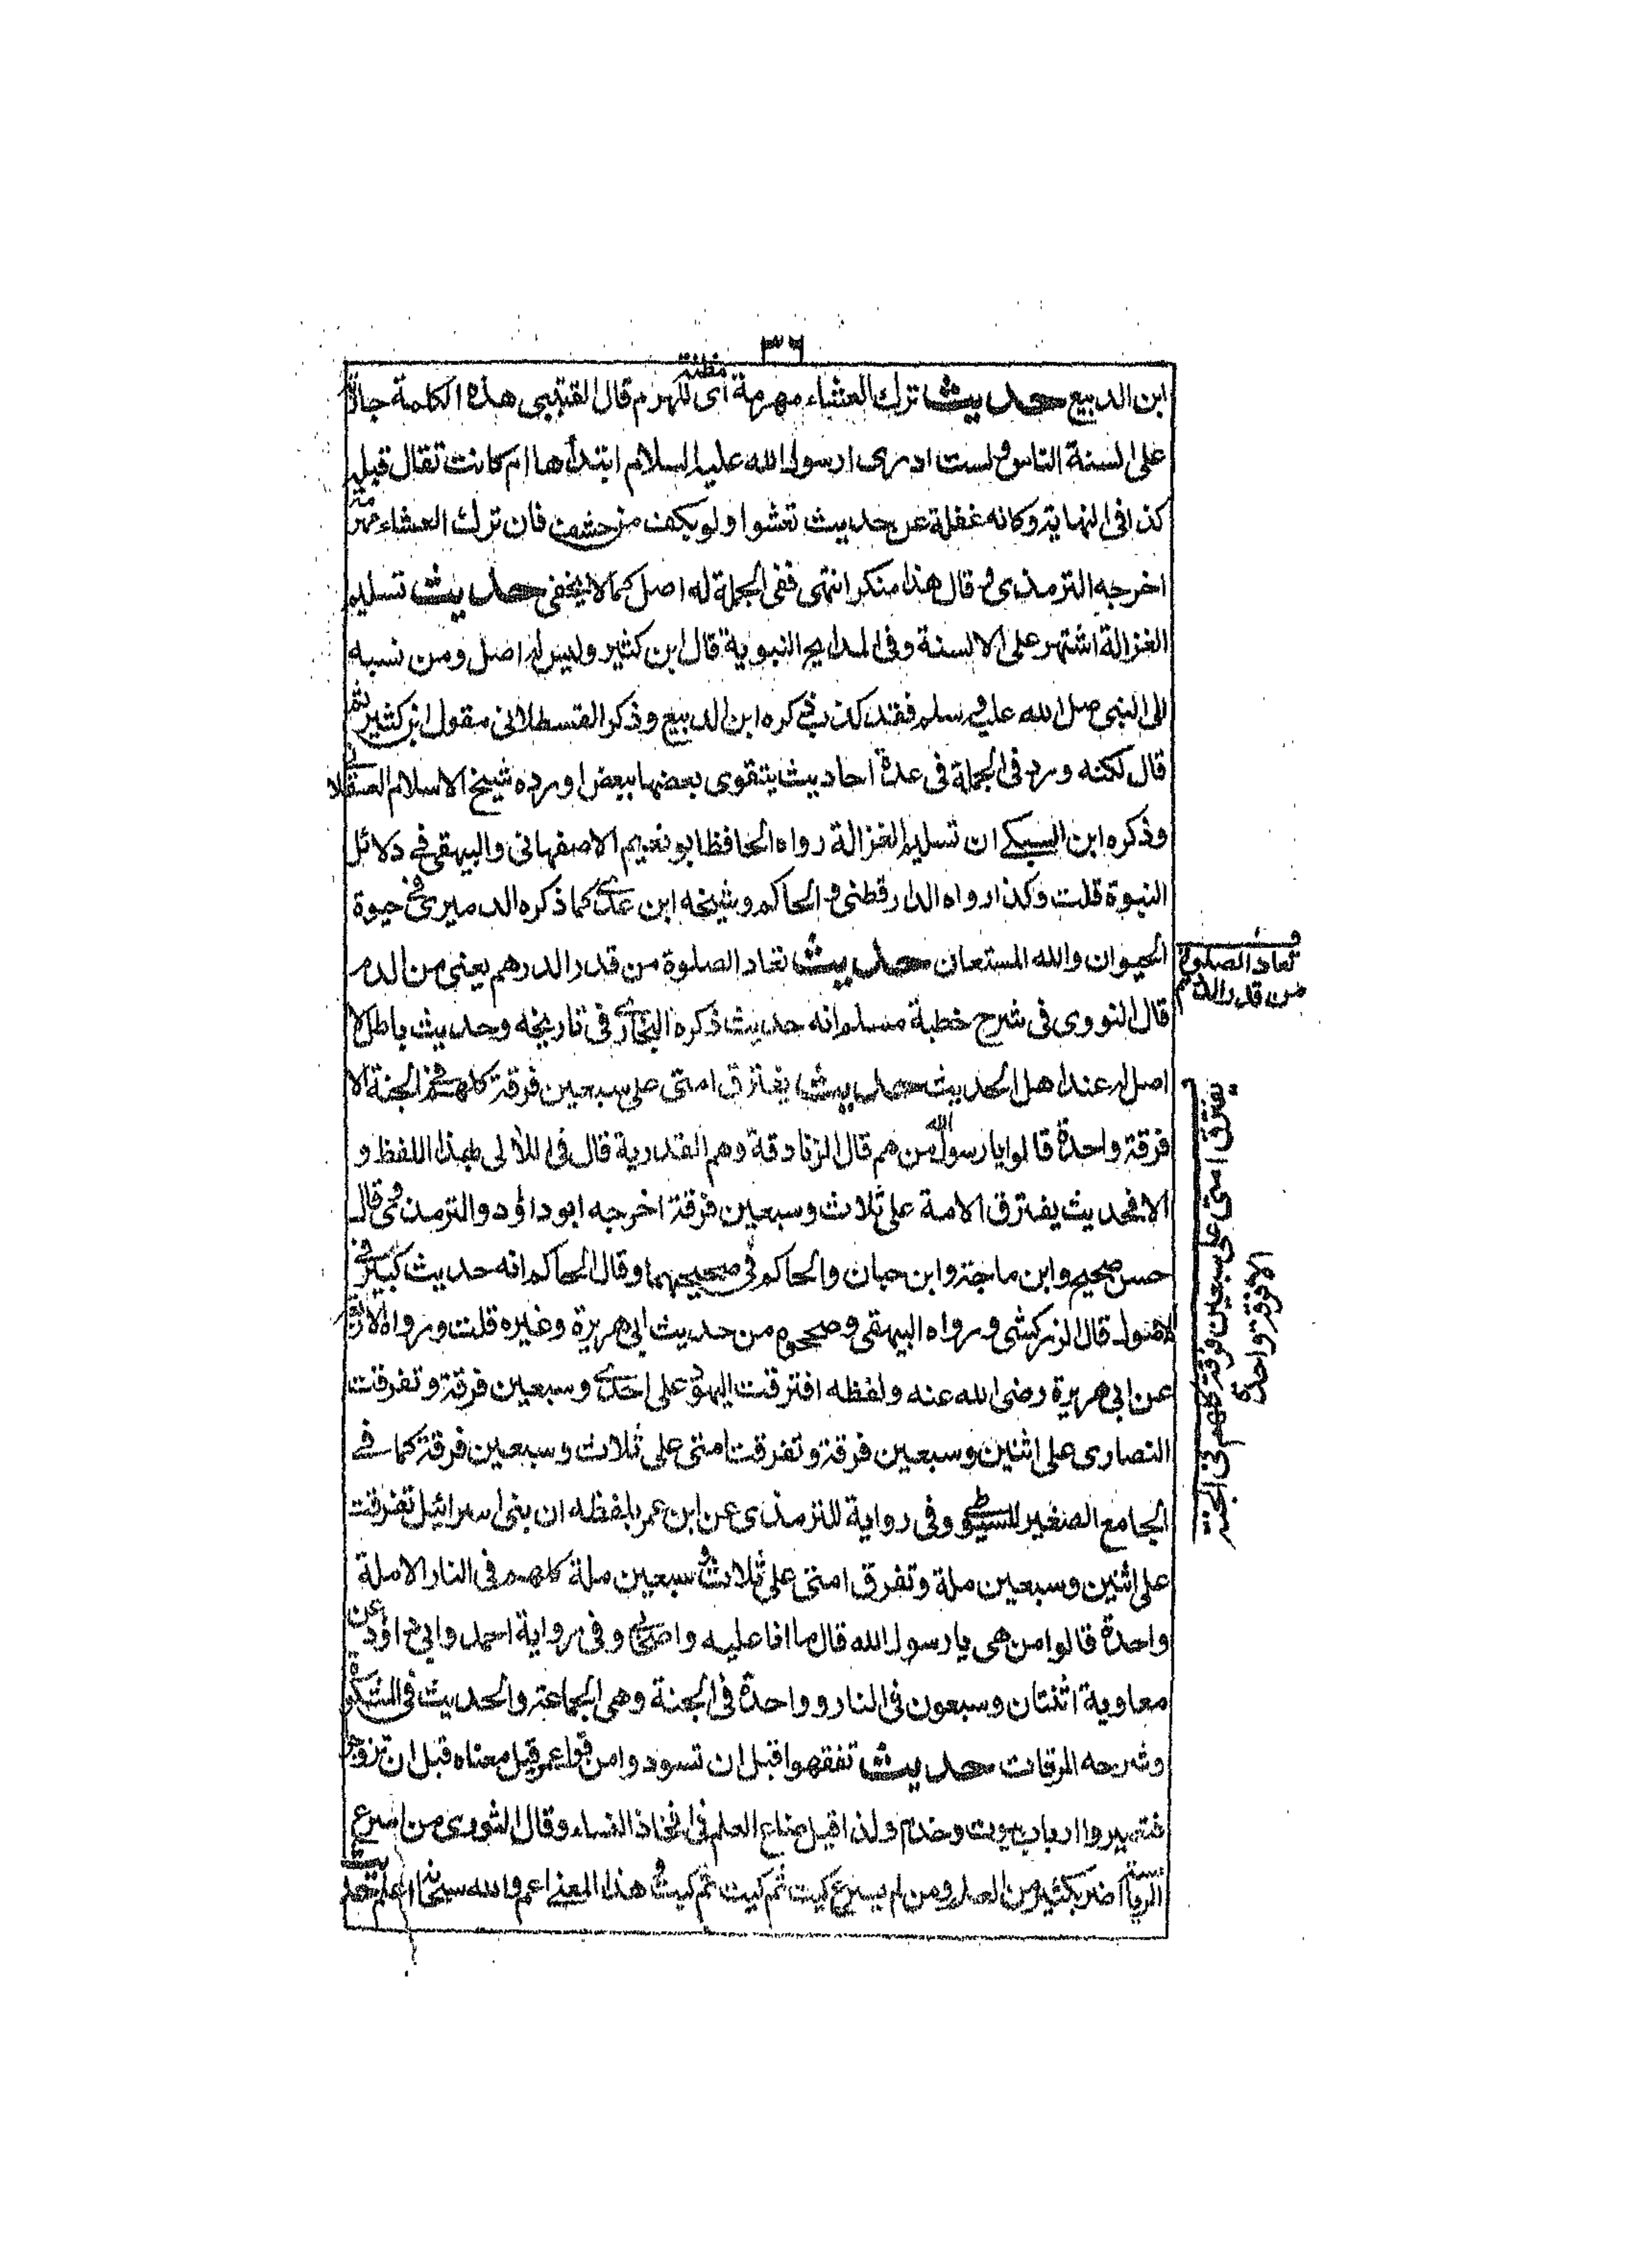 ٣٦
ابن الديبع حديث ترك العشاء مهرمة اى مظنة للهرم قال القتيبى هذه الكلمة جارية
على السنة الناس ولست ادرى ارسول الله عليه السلام ابتدأها ام كانت تقال قبله
كذا فى النهاية وكانه غفلة عن حديث تعشوا ولو بكف من حشف فان ترك العشاء مهرمة
اخرجه الترمذى وقال هذا منكر انتهى ففى الجملة له اصل كما لا يخفى حديث تسليم
الغزالة اشتهر على الالسنة وفى المدايح النبوية قال ابن كثير وليس له اصل ومن نسبه
الى النبى صلى الله عليه وسلم فقد كذب ذكره ابن الديبع وذكر القسطلانى مقول ابن كثير ثم
قال لكنه ورد فى الجملة فى عدة احاديث يتقوى بعضها ببعض اورده شيخ الاسلام العسقلانى
وذكره ابن السبكى ان تسليم الغزالة رواه الحافظ ابو نعيم الاصفهانى والبيهقى فى دلائل
النبوة قلت وكذا رواه الدارقطنى والحاكم وشيخه ابن عدى كما ذكره الدميرى فى حيوة
الحيوان والله المستعان حديث تعاد الصلوة من قدر الدرهم يعنى من الدم
قال النووى فى شرح خطبة مسلم انه حديث ذكره البخارى فى تاريخه وحديث باطل لا
اصل له عند اهل الحديث حديث يفترق امتى على سبعين فرقة كلهم فى الجنة الا
فرقة واحدة قالوا يا رسول الله من هم قال الزنادقة وهم القدرية قال فى اللألى بهذا اللفظ و
الا فحديث يفترق الامة على ثلاث وسبعين فرقة اخرجه ابو داؤد والترمذى وقال
حسن صحيح وابن ماجة وابن حبان والحاكم فى صحيحيهما وقال الحاكم انه حديث كبير فى
الاصول قال الزركشى ورواه البيهقى وصححوه من حديث ابى هريرة وغيره قلت ورواه الاربعة
عن ابى هريرة رضى الله عنه ولفظه افترقت اليهود على احدى وسبعين فرقة وتفرقت
النصارى على اثنين وسبعين فرقة وتفرقت امتى على ثلاث وسبعين فرقة كما فى
الجامع الصغير للسيوطى وفى رواية للترمذى عن ابن عمر بلفظه ان بنى اسرائيل تفرقت
على اثنين وسبعين ملة وتفرق امتى على ثلاث و سبعين ملة كلهم فى النار الا ملة
واحدة قالوا من هى يا رسول الله قال ما انا عليه واصحابى وفى رواية احمد وابى داؤد عن
معاوية اثنتان وسبعون فى النار وواحدة فى الجنة وهى الجماعة والحديث فى المشكوة
وشرحه المرقات حديث تفقهوا قبل ان تسودوا من قول عمر قيل معناه قبل ان تزوجوا
فتصيروا ارباب بيوت وخدم ولذا قيل ضاع العلم فى افخاذ النساء وقال الثورى من اسرع
الرياسة اضر بكثير من العلم ومن لم يسرع كيت ثم كيت ثم كيت و هذا المعنى اعم والله سبحانه اعلم حديث تعلم
تعاد الصلوة
من قدر الدرهم
يفترق امتى على سبعين فرقة كلهم فى الجنة
الا فرقة واحدة